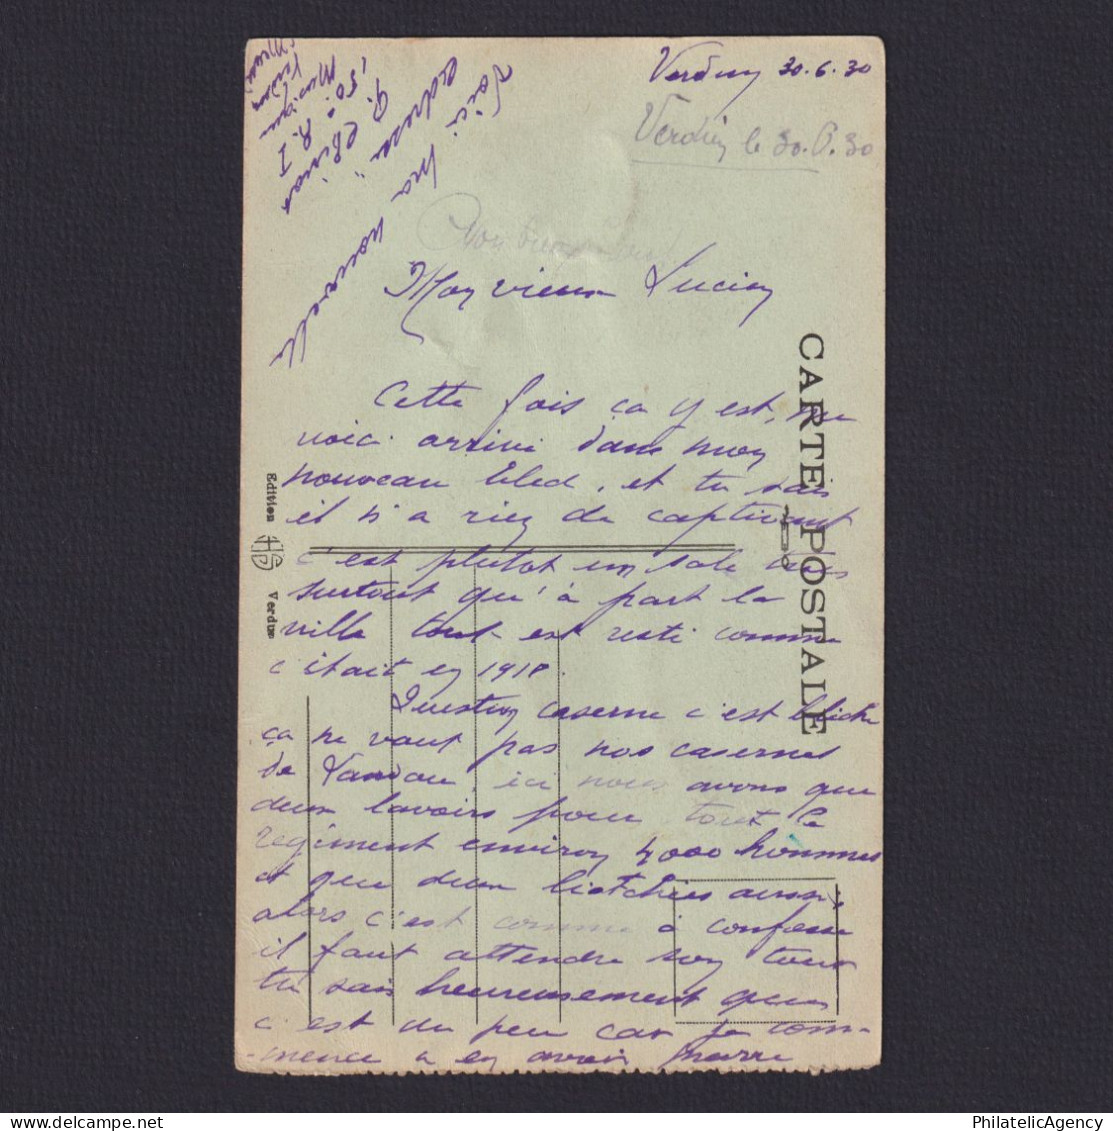 Verdun 30.6.30
Verdun le 30.6.30
Voici ma nouvelle
adresse
150e R. I
Musique
Verdun
(Meuse)
Mon vieux
Mon vieux Lucien
Cette fois ça y est, me
voici arrivé dans mon
nouveau bled, et tu sais
il n'a rien de captivant
c'est plutot un sale
surtout qu'à part la
ville tout est resté comme
c'était en 1918.
Question caserne c'est
ça ne vaut pas nos casernes
de Landau, ici nous avons que
deux lavoirs pour tout le
regiment environ 4000 hommes
et que deux aussi,
alors c'est comme à confesse
il faut attendre son tour
tu sais heureusement que
c'est du peu car je com-
mence a en avoir marre
CARTE POSTALE
Edition HS Verdun
PhilatelicAgency